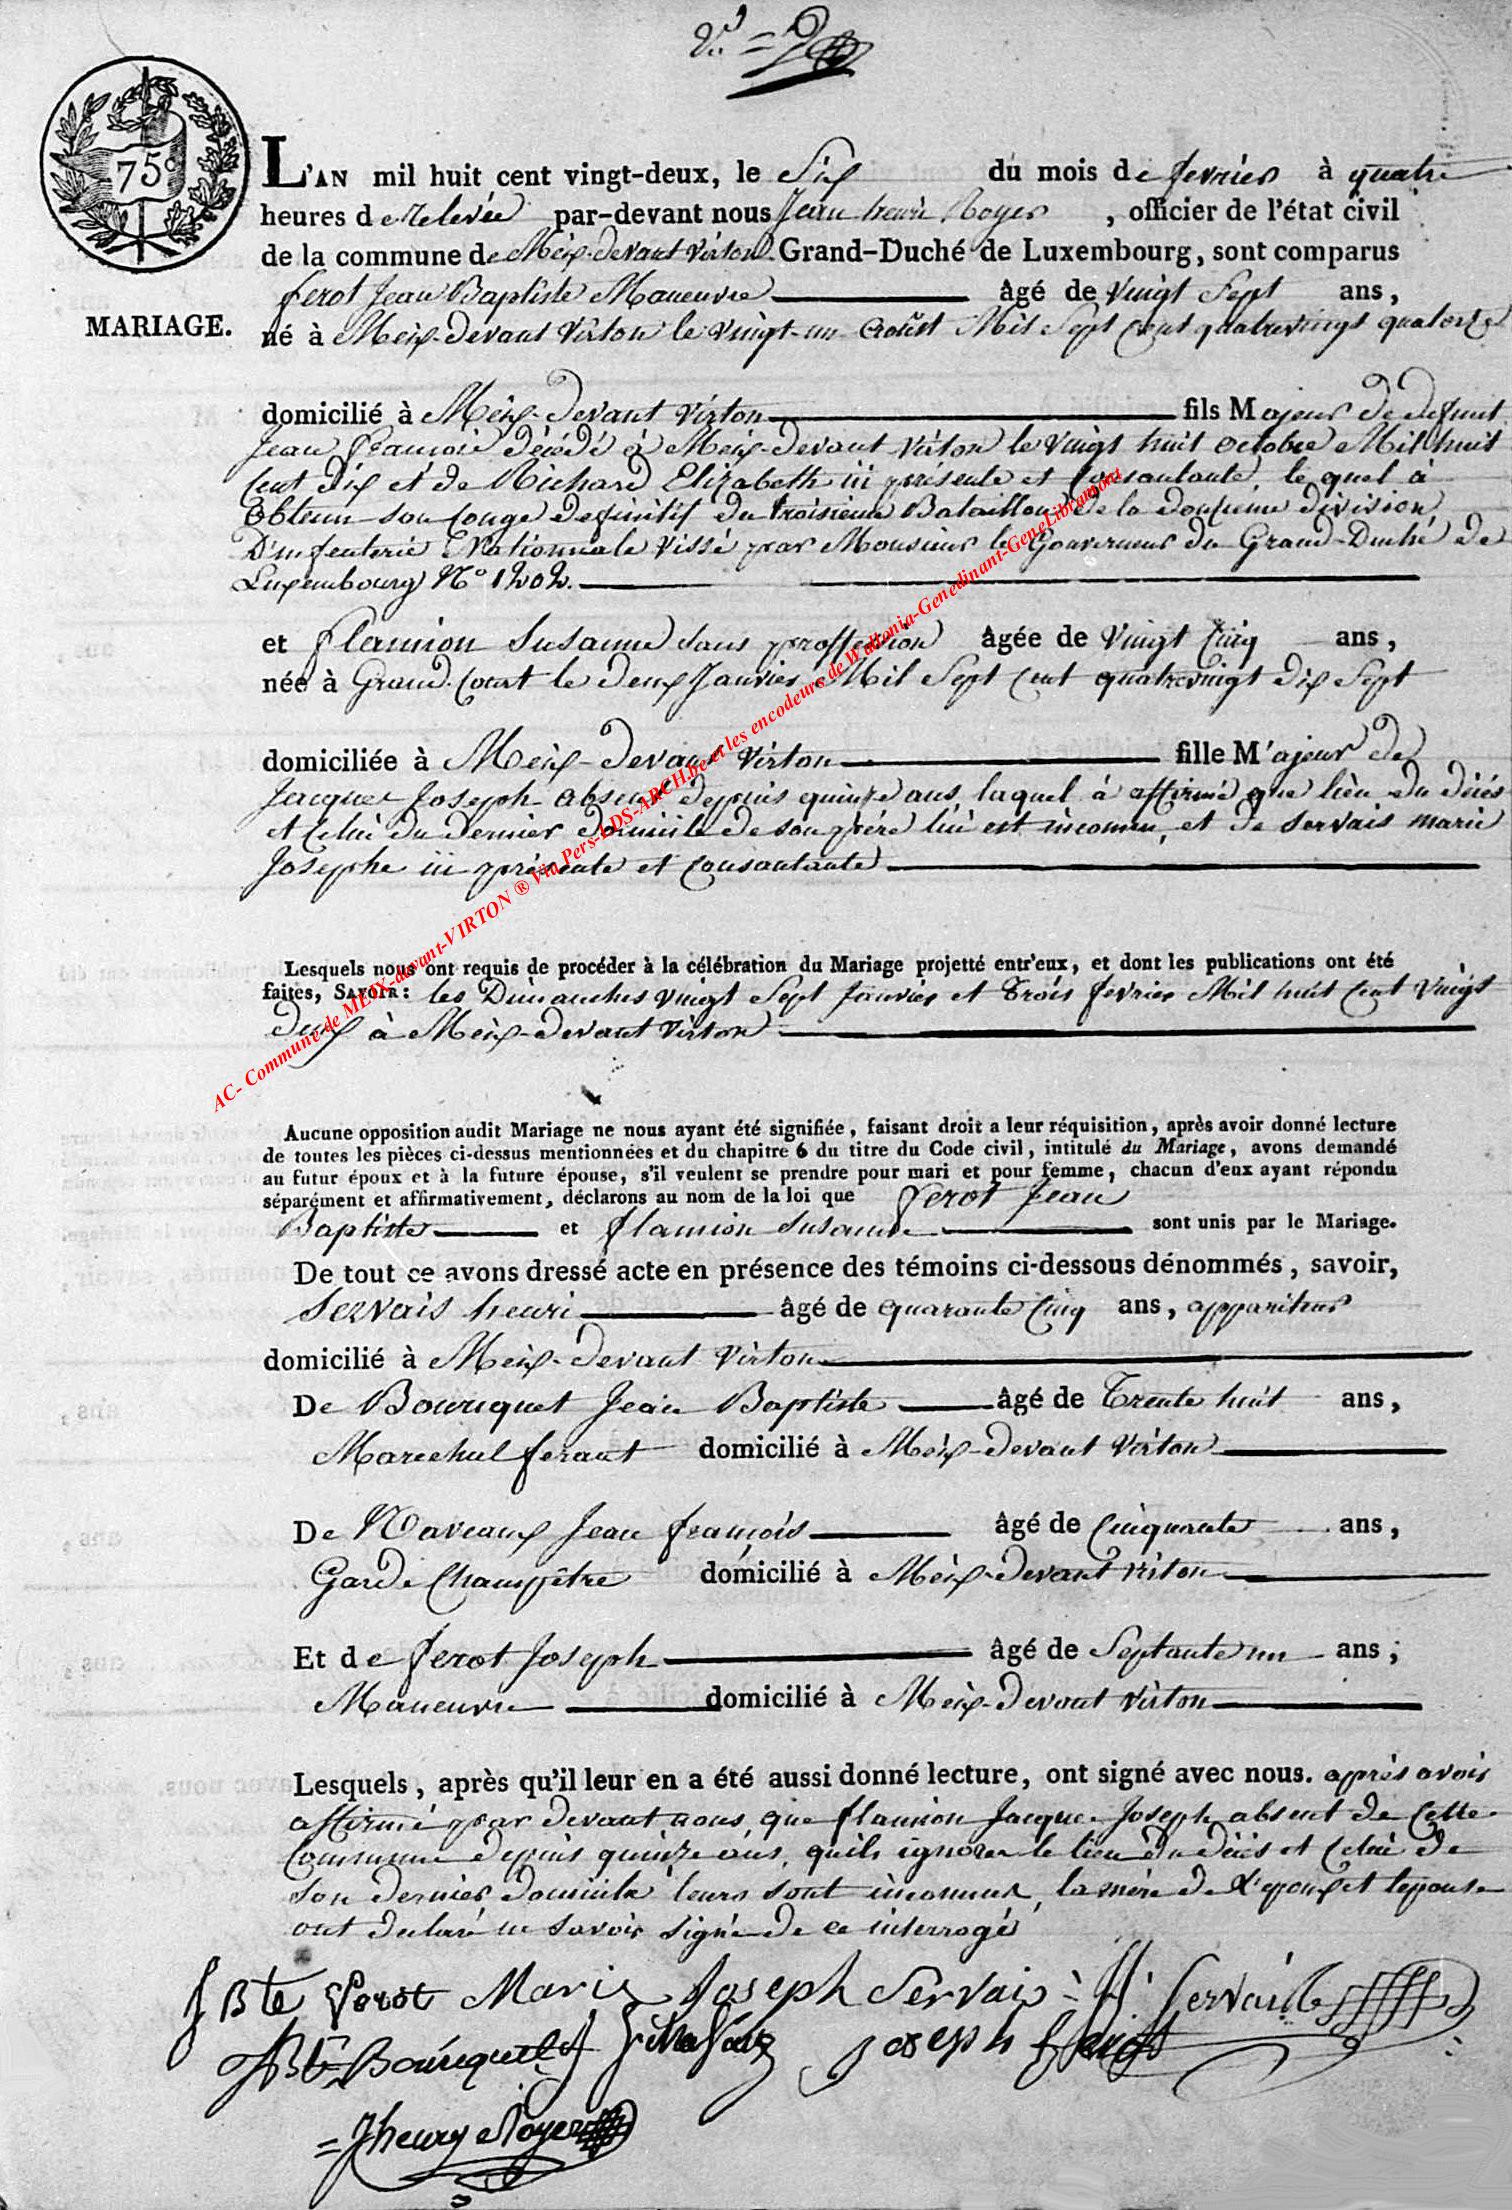 75c
L'AN mil huit cent vingt-deux, le Six du mois de fevrier à quatre
heures de relevée par-devant nous Jean henri Noyer, officier de l'état civil
de la commune de Meix-devant Virton Grand-Duché de Luxembourg, sont comparus
ferot Jean Baptiste Maneuvre âgé de Vingt Sept ans,
MARIAGE.
né à Meix-devant Virton le vingt-un Août Mil Sept Cent quatrevingt quatorze
domicilié à Meix-devant Virton fils Majeur de defunt
Jean francois décédé à Meix-devant Virton le vingt huit octobre Mil huit
Cent dix et de Richard Elizabeth ici présente et Consantante, le quel à
Obtenu son Congé definitif du troisieme Bataillon de la douzieme division
D'infenterie Nationnale Vissé par Monsieur le Gouverneur du Grand-Duché de
Luxembourg N° 1202.
et flamion Susanne sans proffession âgée de Vingt Cinq ans,
née à Grand-Court le deux Janvier Mil Sept Cent quatrevingt dix Sept
domiciliée à Meix-devant Virton fille M'ajeur de
Jacque Joseph absent depuis quinze ans, laquel à affirmé que lieu du décès
et Celui du dernier domicile de son père lui est inconnu, et de Servais marie
Josephe ici présente et Consantante
Lesquels nous ont requis de procéder à la célébration du Mariage projetté entr'eux, et dont les publications ont été
faites, SAVOIR: les Dimanches vingt Sept Janvier et Trois fevrier Mil huit Cent Vingt
deux à Meix-devant Virton
Aucune opposition audit Mariage ne nous ayant été signifiée, faisant droit a leur réquisition, après avoir donné lecture
de toutes les pièces ci-dessus mentionnées et du chapitre 6 du titre du Code civil, intitulé du Mariage, avons demandé
au futur époux et à la future épouse, s'il veulent se prendre pour mari et pour femme, chacun d'eux ayant répondu
séparément et affirmativement, déclarons au nom de la loi que ferot Jean
Baptiste et flamion Susanne sont unis par le Mariage.
De tout ce avons dressé acte en présence des témoins ci-dessous dénommés, savoir,
Servais henri âgé de quarante Cinq ans, appariteur
domicilié à Meix-devant Virton
De Bouriquet Jean Baptiste âgé de Trente huit ans,
Marechal ferant domicilié à Meix-devant Virton
De Naveaux Jean françois âgé de Cinquante ans,
Garde Champêtre domicilié à Meix-devant Virton
Et de ferot Joseph âgé de Septante un ans;
Maneuvre domicilié à Meix-devant Virton
Lesquels, après qu'il leur en a été aussi donné lecture, ont signé avec nous. après avoir
affirmé par devant nous, que flamion Jacque Joseph absent de Cette
Commune depuis quinze ans, quils ignore le lieu du décès et Celui de
Son dernier domicile leurs sont inconnus, la mère de l'epoux et lepouse
ont declaré ne savoir signé de ce interrogé
J Bte ferot Marie Joseph Servais H Servais
JBte Bouriquet Joseph ferot
Jhenry Noyer
AC- Commune de MEIX-devant-VIRTON ® Via Pers-LDS-ARCH.be et les encodeurs de Wallonia-Genedinant-GeneLibramont